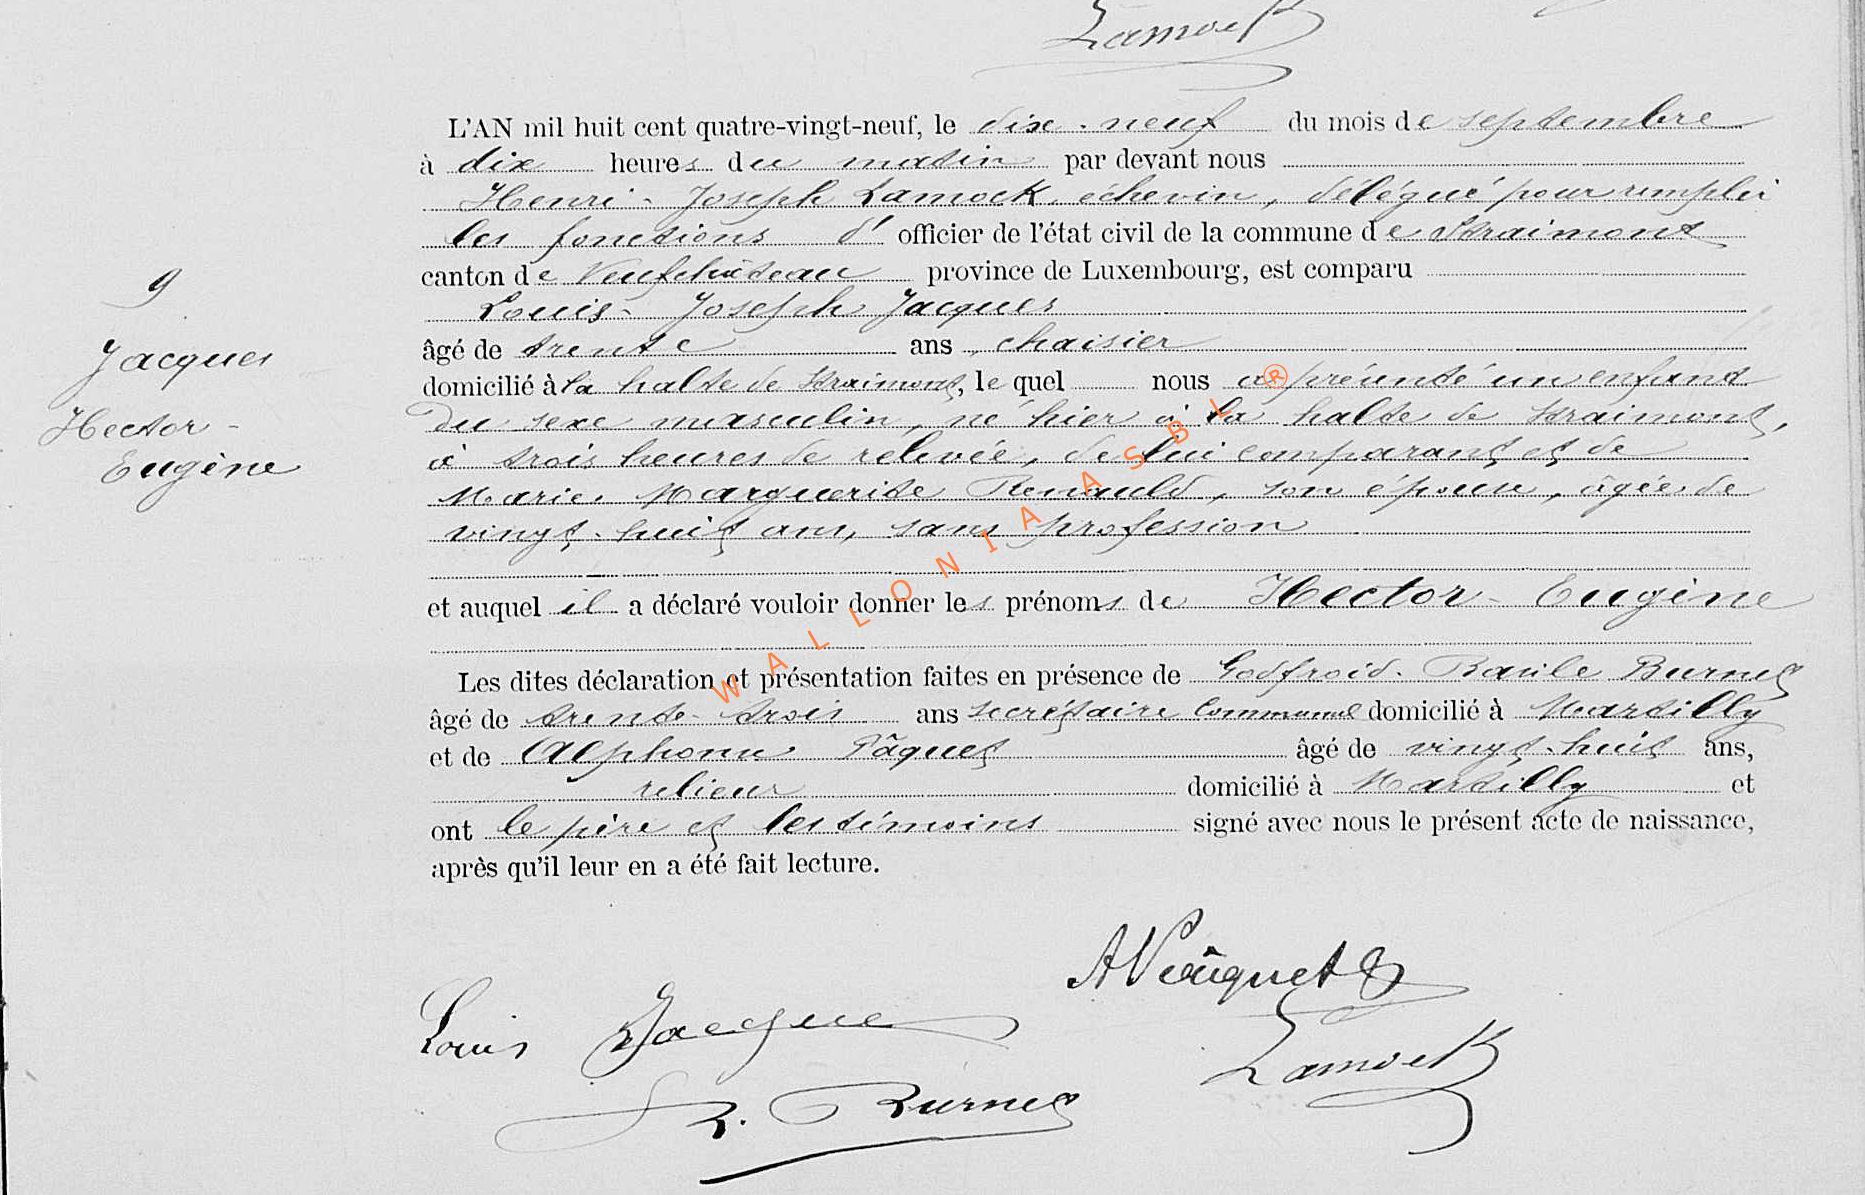 Lamock
L'AN mil huit cent quatre-vingt-neuf, le dix-neuf du mois de septembre
à dix heures du matin par devant nous
Henri-Joseph Lamock, échevin, délégué pour remplir
les fonctions d'officier de l'état civil de la commune de Straimont
canton de Neufchâteau province de Luxembourg, est comparu
9
Louis-Joseph Jacques
Jacques
âgé de trente ans, chaisier
domicilié à la halte de Straimont, lequel nous a présenté un enfant
Hector-
du sexe masculin, né hier à la halte de Straimont,
Eugène
à trois heures de relevée, de lui comparant et de
Marie-Marguerite Renauld, son épouse, âgée de
vingt-huit ans, sans profession
et auquel il a déclaré vouloir donner les prénoms de Hector-Eugène
Les dites déclaration et présentation faites en présence de Godfroid-Basile Burnet
âgé de trente-trois ans secrétaire communal domicilié à Martilly
et de Alphonse Pâquet âgé de vingt-huit ans,
relieur domicilié à Martilly et
ont le père et les témoins signé avec nous le présent acte de naissance,
après qu'il leur en a été fait lecture.
A Pâquet
Louis Jacque
Lamock
Burnet
WALLONIA ASBL ®